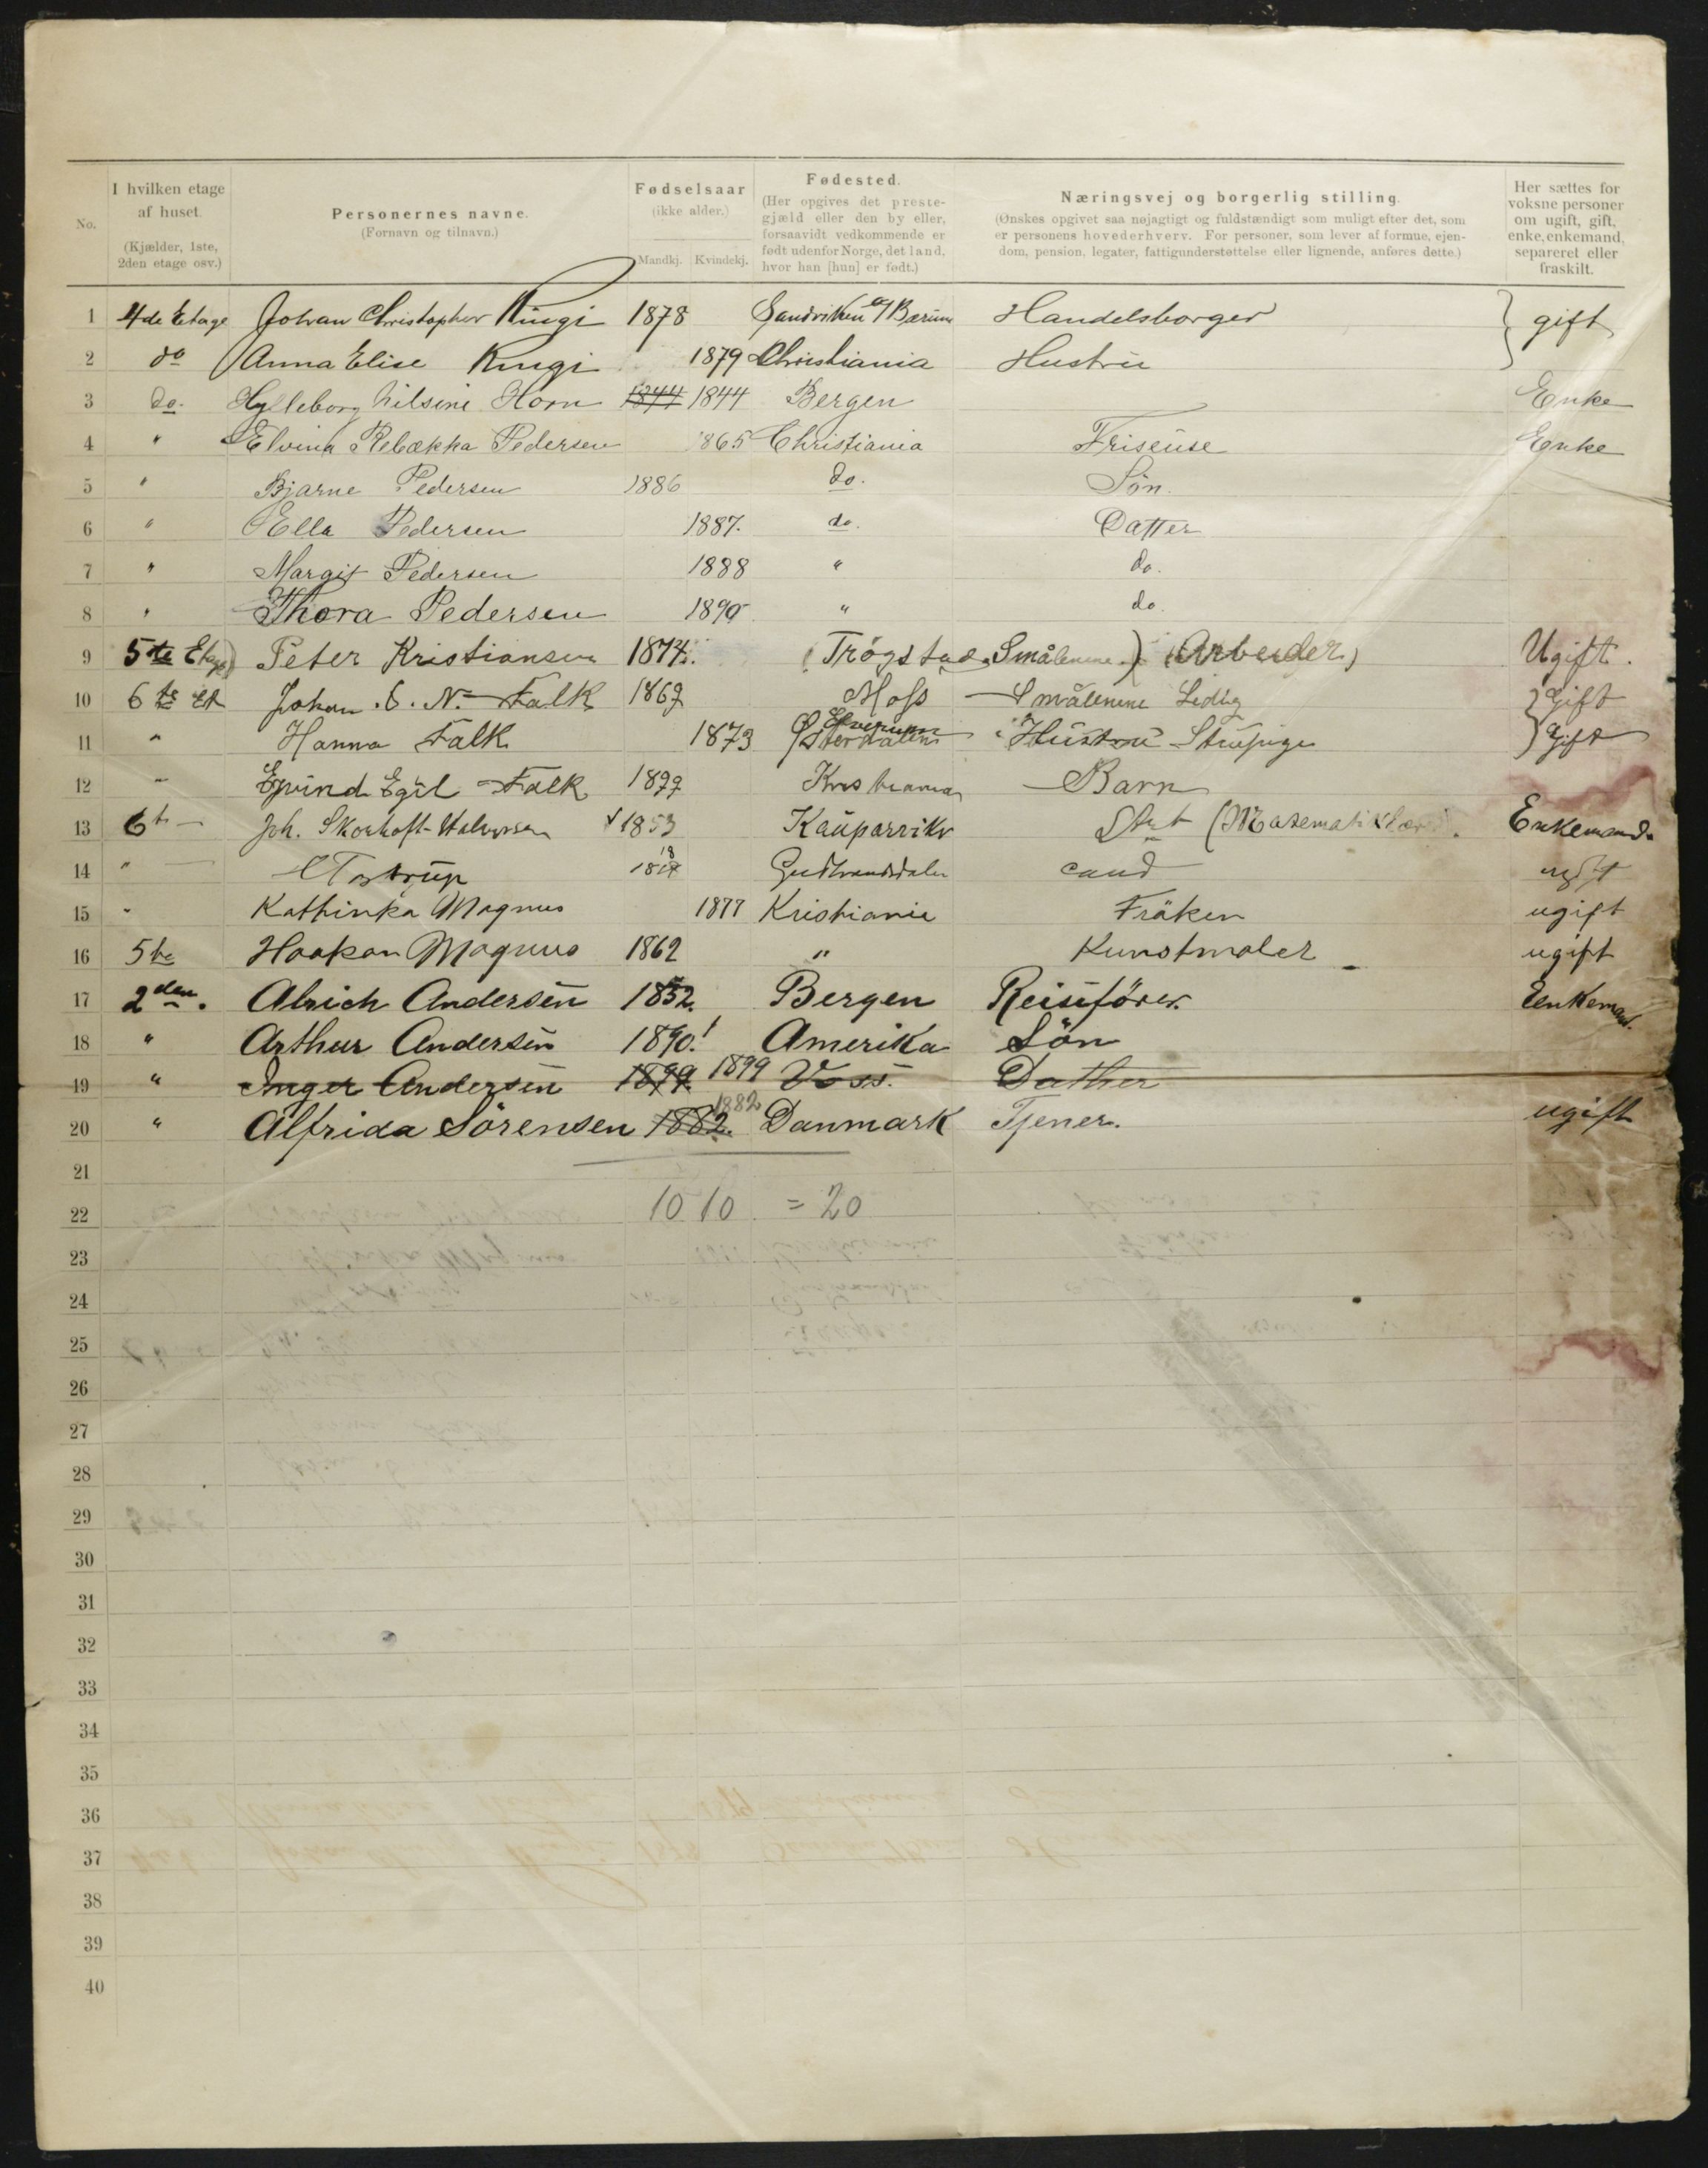 No.
I hvilken etage af huset.
(Kjælder, 1ste, 2den etage osv.)
Personernes navne.
(Fornavn og tilnavn.)
Fødselsaar
(ikke alder.)
Mandkj. Kvindekj.
Fødested.
(Her opgives det preste-
gjæld eller den by eller,
forsaavidt vedkommende er
født udenfor Norge, det land,
hvor han [hun] er født.)
Næringsvej og borgerlig stilling.
(Ønskes opgivet saa nøjagtigt og fuldstændigt som muligt efter det, som
er personens hovederhverv. For personer, som lever af formue, ejen-
dom, pension, legater, fattigunderstøttelse eller lignende, anføres dette.)
Her sættes for
voksne personer
om ugift, gift,
enke, enkemand,
separeret eller
fraskilt.
1 4de Etage Johan Christopher Ringi 1878 Sandviken Bærum Handelsborger gift
2 do Anna Elise Ringi 1879 Christiania Hustru
3 do. Hylleborg Nilsine Horn 1844 1844 Bergen Enke
4 " Elvina Rebækka Pedersen 1865 Christiania Friseuse Enke
5 " Bjarne Pedersen 1886 do. Sön.
6 " Ella Pedersen 1887. do. Datter
7 " Margit Pedersen 1888 " do.
8 " Thora Pedersen 1890 " do.
9 5te Etage) Peter Kristiansen 1874. (Trögstad. Smålenene.) (Arbeider) Ugift.
10 6te Et Johan. C. N. Falk 1869 Moss Smålenene Ledig Gift
11 " Hanna Falk 1873 Elverum Österdalen Hustru Gift
12 " Ejvind Egil Falk 1899 Kristiania Barn
13 6te Joh. 1853 Enkemand.
14 " Tostrup 18 Gudbrandsdalen cand ugift
15 " Kathinka Magnus 1877 Kristiania Fröken ugift
16 5te Haakon Magnus 1862 " Kunstmaler ugift
17 2den. Alrich Andersen 1852. Bergen Reisefører. Eenkemand.
18 " Arthur Andersen 1890! Amerika Sön
19 " Inger Andersen 1899. 1899 Voss. Datther
20 " Alfrida Sörensen 1882. 1882 Danmark Tjener. ugift
21
22 10 10 = 20
23
24
25
26
27
28
29
30
31
32
33
34
35
36
37
38
39
40